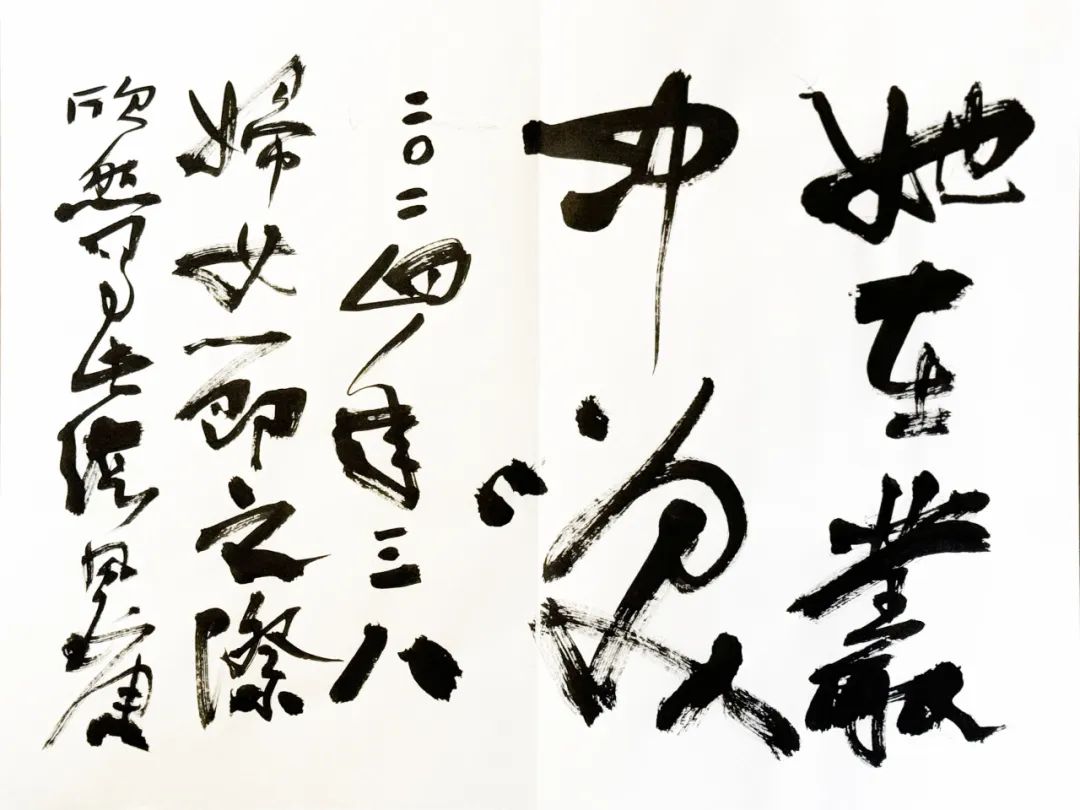 她在叢
中笑
二〇二四年三八
婦女節之際
欣然